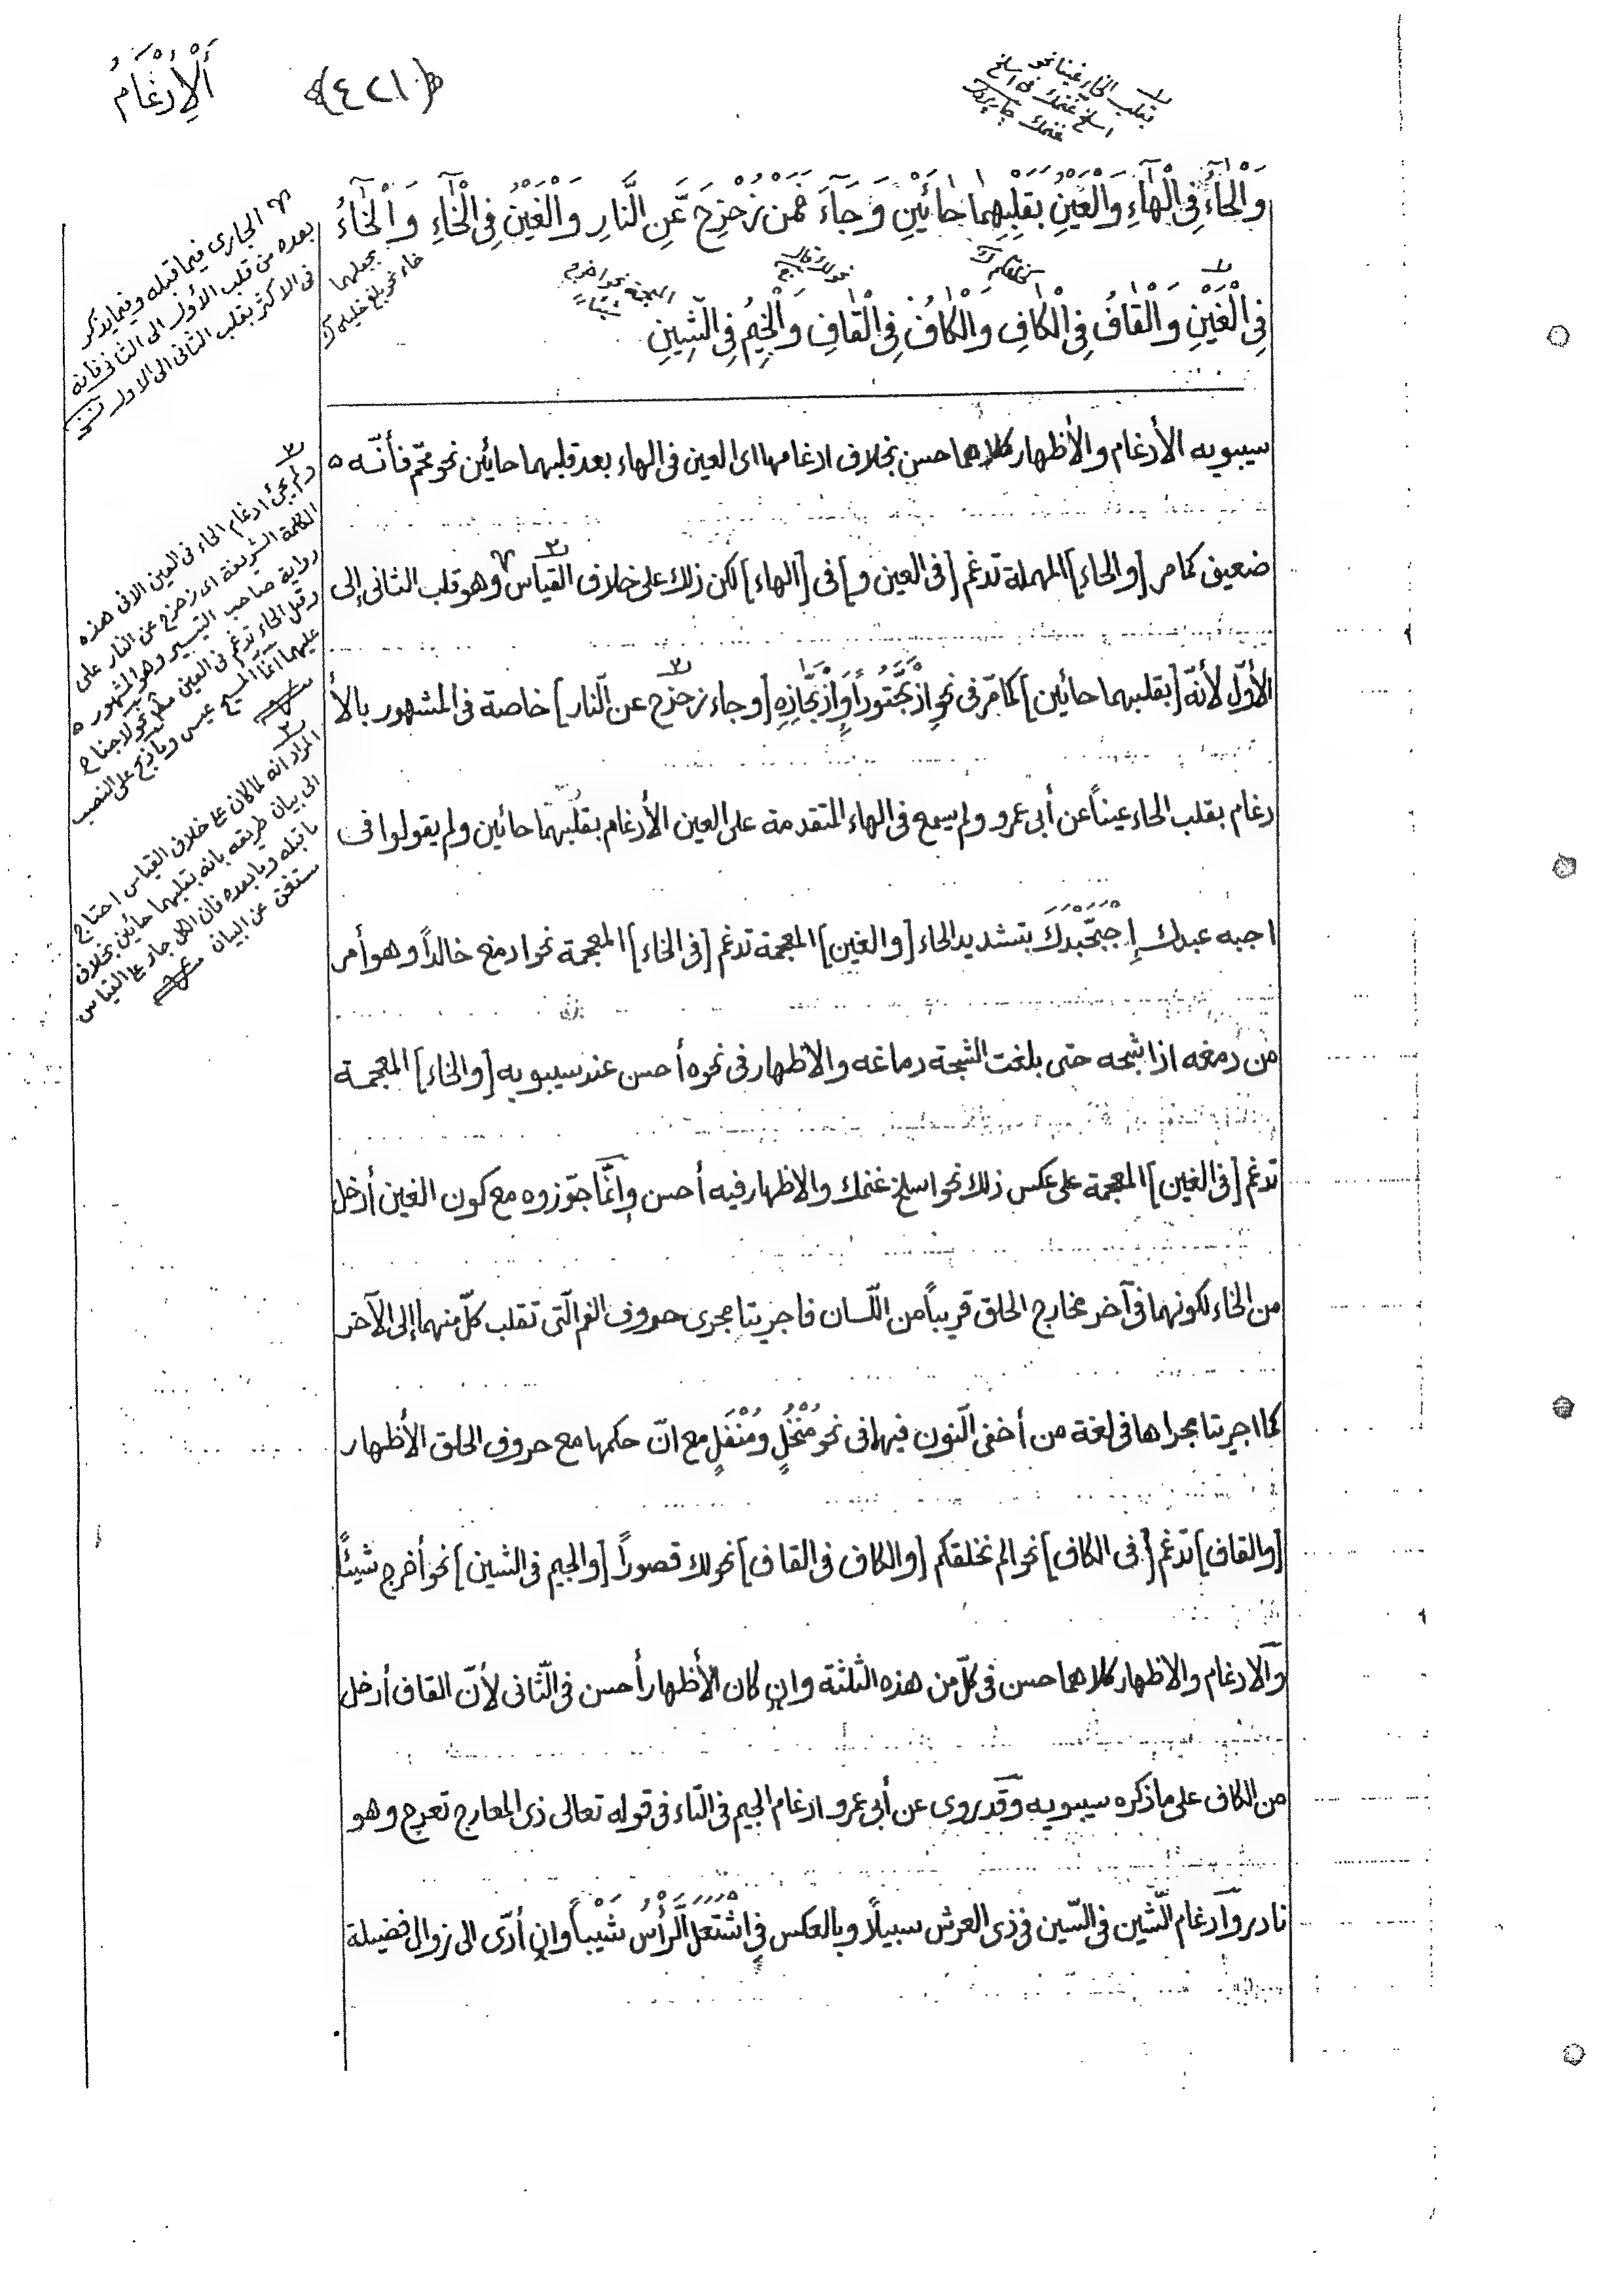 اَلْاِدْغَامُ
﴿٤٢١﴾
تقلب الخاء غينا نحو
اسلخ غنمك فى اسلخ
غنمك جاربردى
وَالْحَاءُ فِى الْهَاءِ وَالْعَيْنِ بِقَلْبِهِمَا حَائَيْنِ وَ جَاءَ فَمَنْ زُحْزِحَ عَّنِ النَّارِ وَالْغَيْنُ فِى الْخَاءِ وَالْخَاءُ
بجعلهما
خاء نحو بلغ خليلك
فِى الْغَيْنِ وَالْقَافُ فِى الْكَافِ وَالْكَافُ فِى الْقَافِ وَالْجِيمُ فِى الشِّينِ
سيبويه الأدغام والأظهار كلاهما حسن بخلاف ادغامها اى العين فى الهاء بعد قلبهما حائين نحو محّم فأنّه
ضعيف كما مر [والحاء] المهملة تدغم [فى العين و] فى [الهاء] لكن ذلك على خلاف القياس وهو قلب الثانى إلى
الأوّل لأنّه [بقلبهما حائين] كما مّر فى نحو اذبحّتودا واذبحّاذه [وجاء زحزح عن النار] خاصة فى المشهور بالأ
دغام بقلب الحاء عيناً عن أبى عمرو ولم يسمع فى الهاء المتقدمة على العين الأدغام بقلبهما حائين ولم يقولوا فى
اجبه عبدك إِجْبَحَّبْدَكَ بتشديد الحاء [والغين] المعجمة تدغم [فى الخاء] المعجمة نحو ادمغ خالداً وهو أمر
من دمغه اذا شجه حتى بلغت الشجة دماغه والأظهار فى نحوه أحسن عند سيبويه [والخاء] المعجمة
تدغم [فى الغين] المعجمة على عكس ذلك نحو اسلخ غنمك والاظهار فيه أحسن وإنّما جوّزوه مع كون الغين أدخل
من الخاء لكونهما فى آخر مخارج الحلق قريباً من اللّسان فاجريتا مجرى حروف الفم الّتى تقلب كلّ منهما إلى الآخر
كما اجريتا مجراها فى لغة من أخفى النّون فيها فى نحو مُنْخُلٍ ومُنْغَلٍ مع انّ حكمها مع حروف الحلق الأظهار
[والقاف] تدغم [فى الكاف] نحو الم نخلقكم [والكاف فى القاف] نحو لك قصوراً [والجيم فى الشين] نحو أخرج شيئًا
والادغام والاظهار كلاهما حسن فى كلّ من هذه الثلثة وان كان الأظهار أحسن فى الثّانى لأنّ القاف أدخل
من الكاف على ما ذكره سيبويه وقد روى عن أبى عمرو ادغام الجيم فى التّاء فى قوله تعالى ذى المعارج تعرج وهو
نادر وادغام الشّين فى السّين فى ذى العرش سبيلًا وبالعكس فى اشْتَعَلَ الرَّأْسُ شَيْباً وان أدّى الى زوال فضيلة
الجارى فيما قبله وفيما يذكر
بعده من قلب الأول الى الثانى فانه
فى الاكثر بقلب الثانى الى الاول
ولم يجئ ادغام الحاء فى العين الا فى هذه
الكلمة الشريفة اى زحزح عن النار على
رواية صاحب التيسير وهو المشهور
وقيل الحاء تدغم فى العين نحو لا جناح
عليهما انما المسيح عيسى وما ذبح على النصب
المراد انه لما كان على خلاف القياس احتاج
الى بيان طريقه بانه بقلبهما حائين بخلاف
ما قبله وما بعده فان الكل جار على القياس
مستغن عن البيان